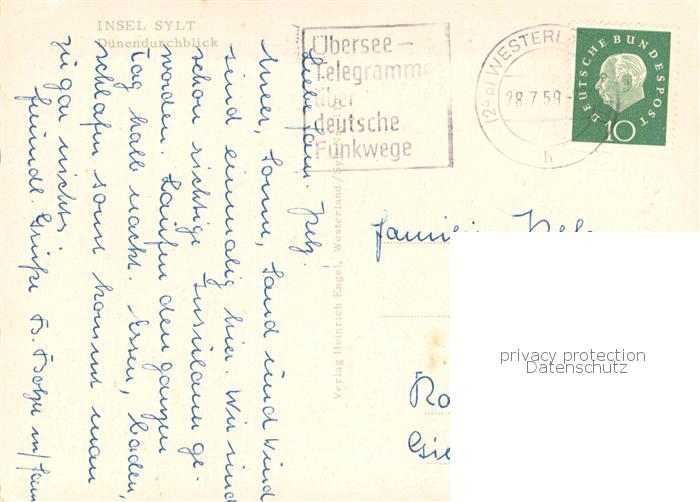 INSEL SYLT
Dünendurchblick
Übersee-
Telegramme
über
deutsche
Funkwege
(24b) WESTERL
28.7.59-
h
DEUTSCHE BUNDESPOST
10
Liebe Fam. Pelz.
Meer, Sonne, Sand und Wind
sind einmalig hier. Wir sind
schon richtige Insulaner ge-
worden. Laufen den ganzen
Tag halb nackt. Essen, baden,
schlafen sonst kommt man
zu gar nichts.
freundl. Grüße
Verlag Heinrich Engel, Westerland/Sylt
Familie Pelz
Ro
Gie
privacy protection
Datenschutz